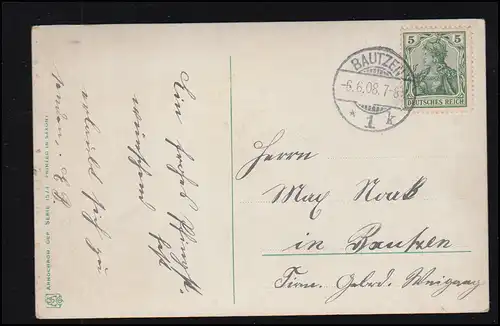 Ein frohes Pfingst-
fest
wünschend
erlaubt sich zu
senden. E.B.
MEISSNER & BUCH
SERIE 1574 PRINTED IN SAXONY
BAUTZEN
-6.6.08. 7-8
* 1 k
5 5
DEUTSCHES REICH
Herrn
Max Noak
in Bautzen
Firm. Gebrd. Weigang